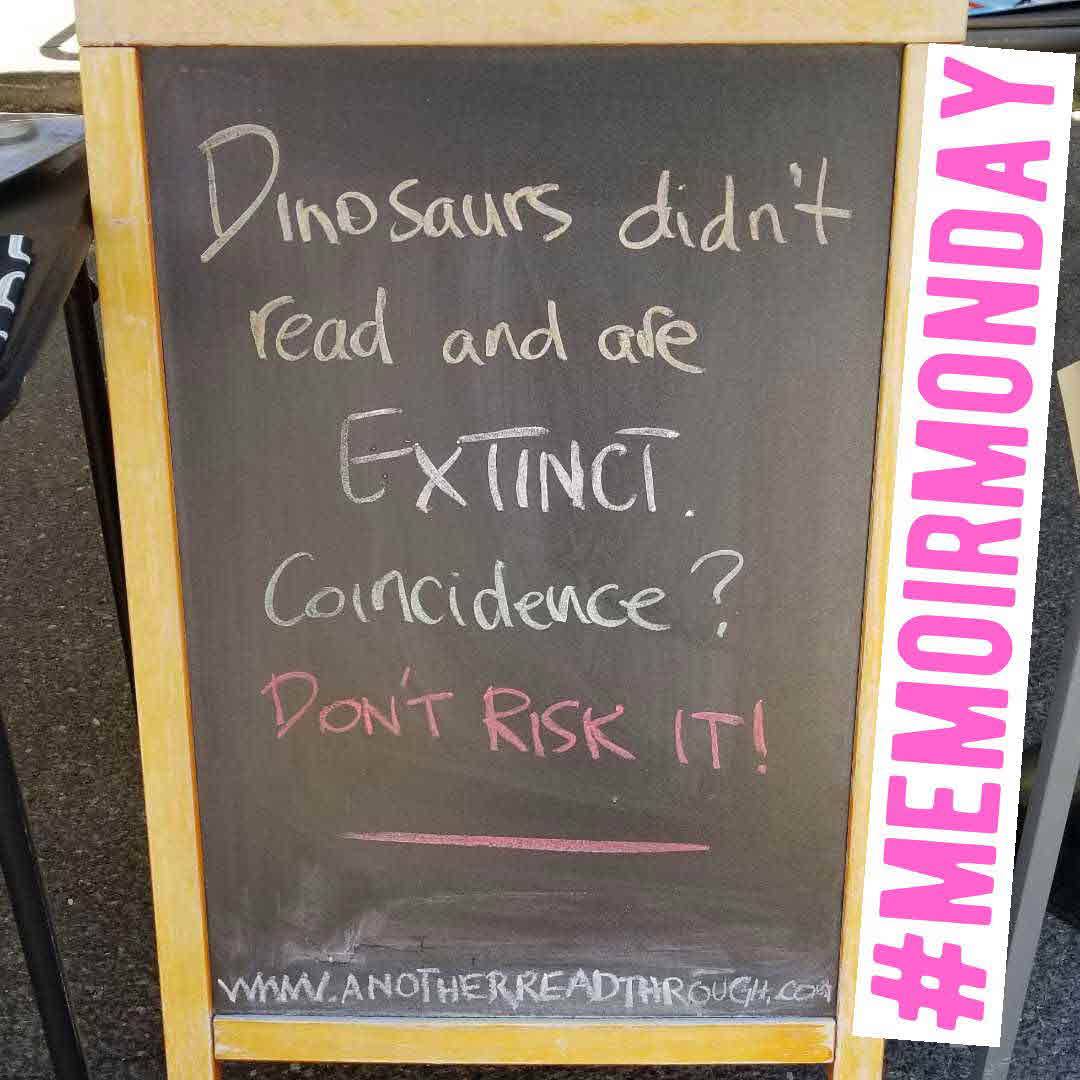 Dinosaurs didn't
read and are
EXTINCT.
Coincidence?
DON'T RISK IT!
WWW.ANOTHERREADTHROUGH.COM
#MEMOIRMONDAY